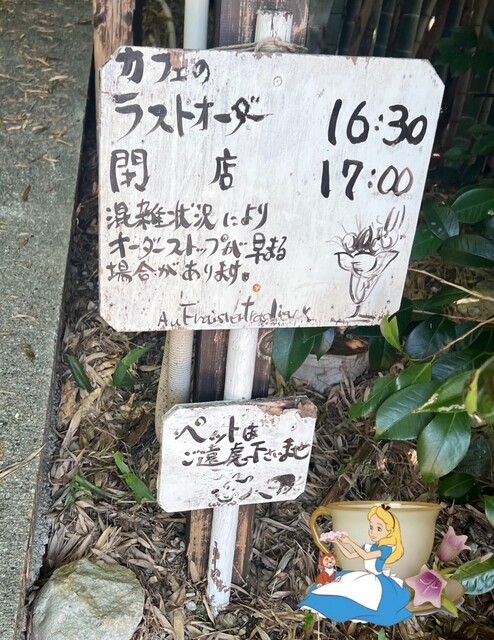 カフェの
ラストオーダー 16:30
閉店 17:00
混雑状況により
オーダーストップが早まる
場合があります。
ペットは
ご遠慮下さいませ